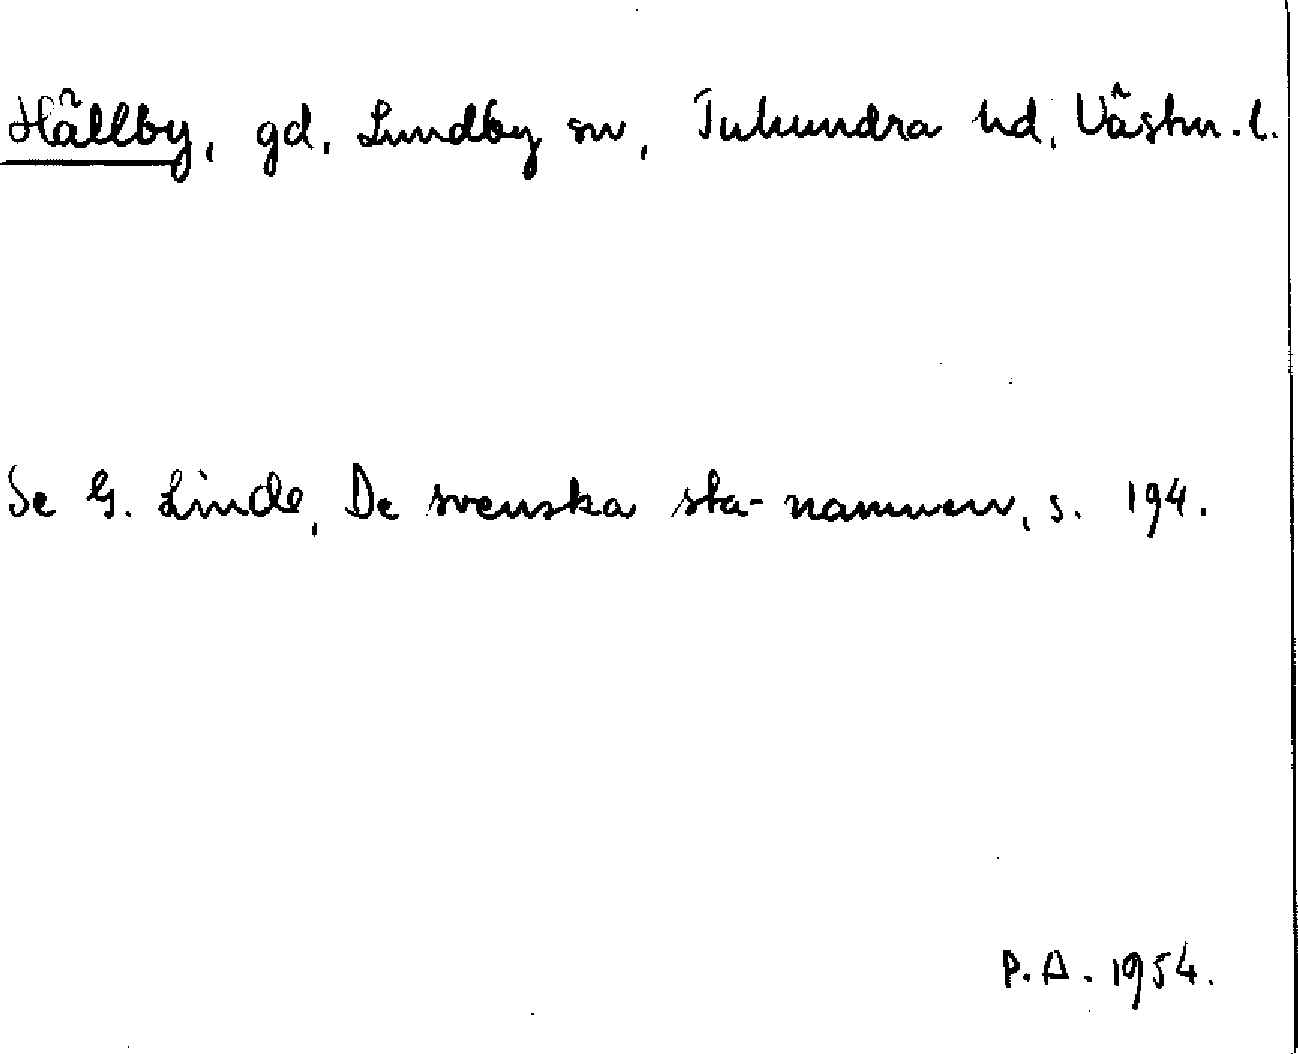 Hällby, gd, Lundby sn, Tuhundra hd, Västm. l.
Se G. Linde, De svenska sta-namnen, s. 194.
P.A. 1954.